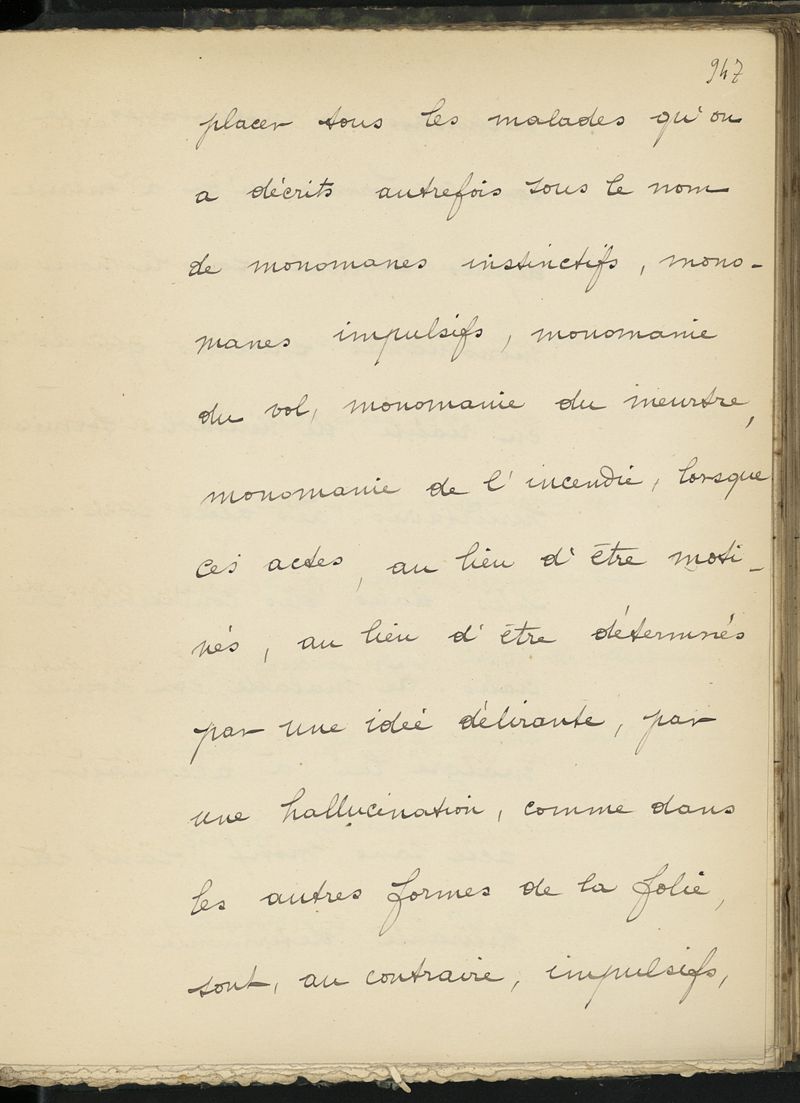 947
placer tous les malades qu'on
a décrits autrefois sous le nom
de monomanes instinctifs, mono-
manes impulsifs, monomanie
du vol, monomanie du meurtre,
monomanie de l'incendie, lorsque
ces actes, au lieu d'être moti-
vés, au lieu d'être déterminés
par une idée délirante, par
une hallucination, comme dans
les autres formes de la folie,
sont, au contraire, impulsifs,